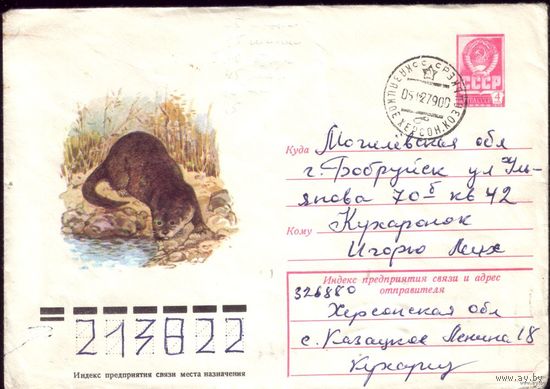 СССР
4
05 12 79 00
Куда Могилевская обл
г. Бобруйск ул Уль-
янова 70б кв 42
Кухаронок
Кому Игорю
Индекс предприятия связи и адрес
отправителя
326880
Херсонская обл
с. Казацкое Ленина 18
213822
Индекс предприятия связи места назначения
www.ay.by